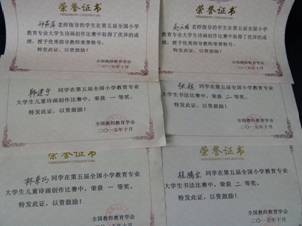 荣誉证书
老师指导的学生在第五届全国小学
教育专业大学生诗画创作比赛中取得了优异的成绩，
授予优秀指导教师荣誉称号。
特发此证，以资鼓励！
全国教师教育学会
二〇一五年十月
荣誉证书
老师指导的学生在第五届全国小学
教育专业大学生诗画创作比赛中取得了优异的成绩，
授予优秀指导教师荣誉称号。
特发此证，以资鼓励！
全国教师教育学会
二〇一五年十月
同学在第五届全国小学教育专业
大学生儿童诗画创作比赛中，荣获 一 等奖。
特发此证，以资鼓励！
全国教师教育学会
二〇一五年十月
同学在第五届全国小学教育专业
大学生书法比赛中，荣获 一 等奖。
特发此证，以资鼓励！
全国教师教育学会
二〇一五年十月
荣誉证书
同学在第五届全国小学教育专业
大学生儿童诗画创作比赛中，荣获 二 等奖。
特发此证，以资鼓励！
全国教师教育学会
二〇一五年十月
荣誉证书
同学在第五届全国小学教育专业
大学生书法比赛中，荣获 二 等奖。
特发此证，以资鼓励！
全国教师教育学会
二〇一五年十月